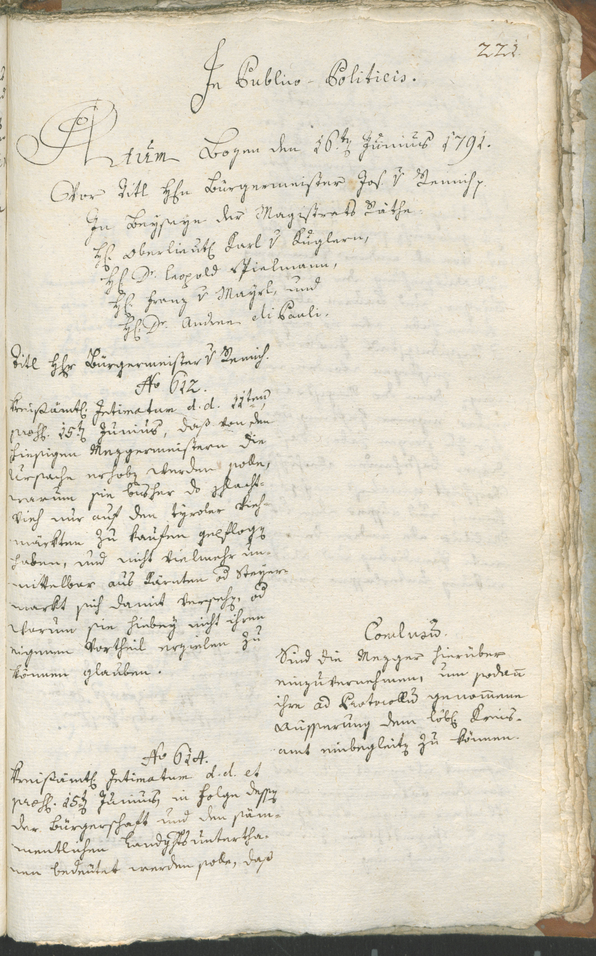 221.
In Publico-Politicis.
Actum Bozen den 16ten Junius 1791.
Vor Titl Hhn Bürgermeister Jos. v Remich
In Beyseye des Magistrats Räthe
H: Oberlieut: Karl v Kuglern,
H: Dr. Leopold Spielmann,
H: Franz v Mayrl, und
H: Dr. Andreas di Pauli.
Titl Hhr Bürgermeister v Remich.
No 612.
Kreisämtl: Intimatum d. d. 11ten
praes: 15ten Junius, daß von den
hiesigen Mezgermeistern die
Ursache erhoben werden solle,
warum sie bisher das Schlacht-
vieh nur auf den tyroler Vieh-
märkten zu kaufen gepflogen
haben, und nicht vielmehr un-
mittelbar aus Kärnten od Steyer-
markt sich damit versehen, od
warum sie hiebey nicht ihren
eignen Vortheil erzielen zu
können glauben.
Conclusum.
Sind die Mezger hierüber
einzuvernehmen, um sodann
ihre ad Protocollum genommene
Äusserung dem löbl: Kreis-
amt einbegleiten zu können.
No 614.
Kreisämtl: Intimatum d. d. et
praes: 15ten Junius, in Folge dessen
der Bürgerschaft und den säm-
mentlichen Landgrsuntertha-
nen bedeutet werden solle, daß